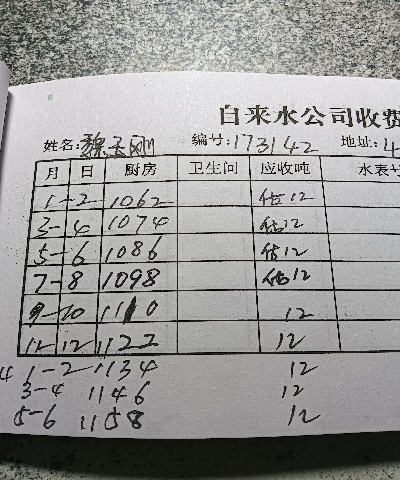 自来水公司收费
姓名:魏玉刚 编号:173142 地址:4
月 日 厨房 卫生间 应收吨 水表
1-2 1062 估12
3-4 1074 估12
5-6 1086 估12
7-8 1098 估12
9-10 1110 12
11-12 1122 12
4 1-2 1134 12
3-4 1146 12
5-6 1158 12